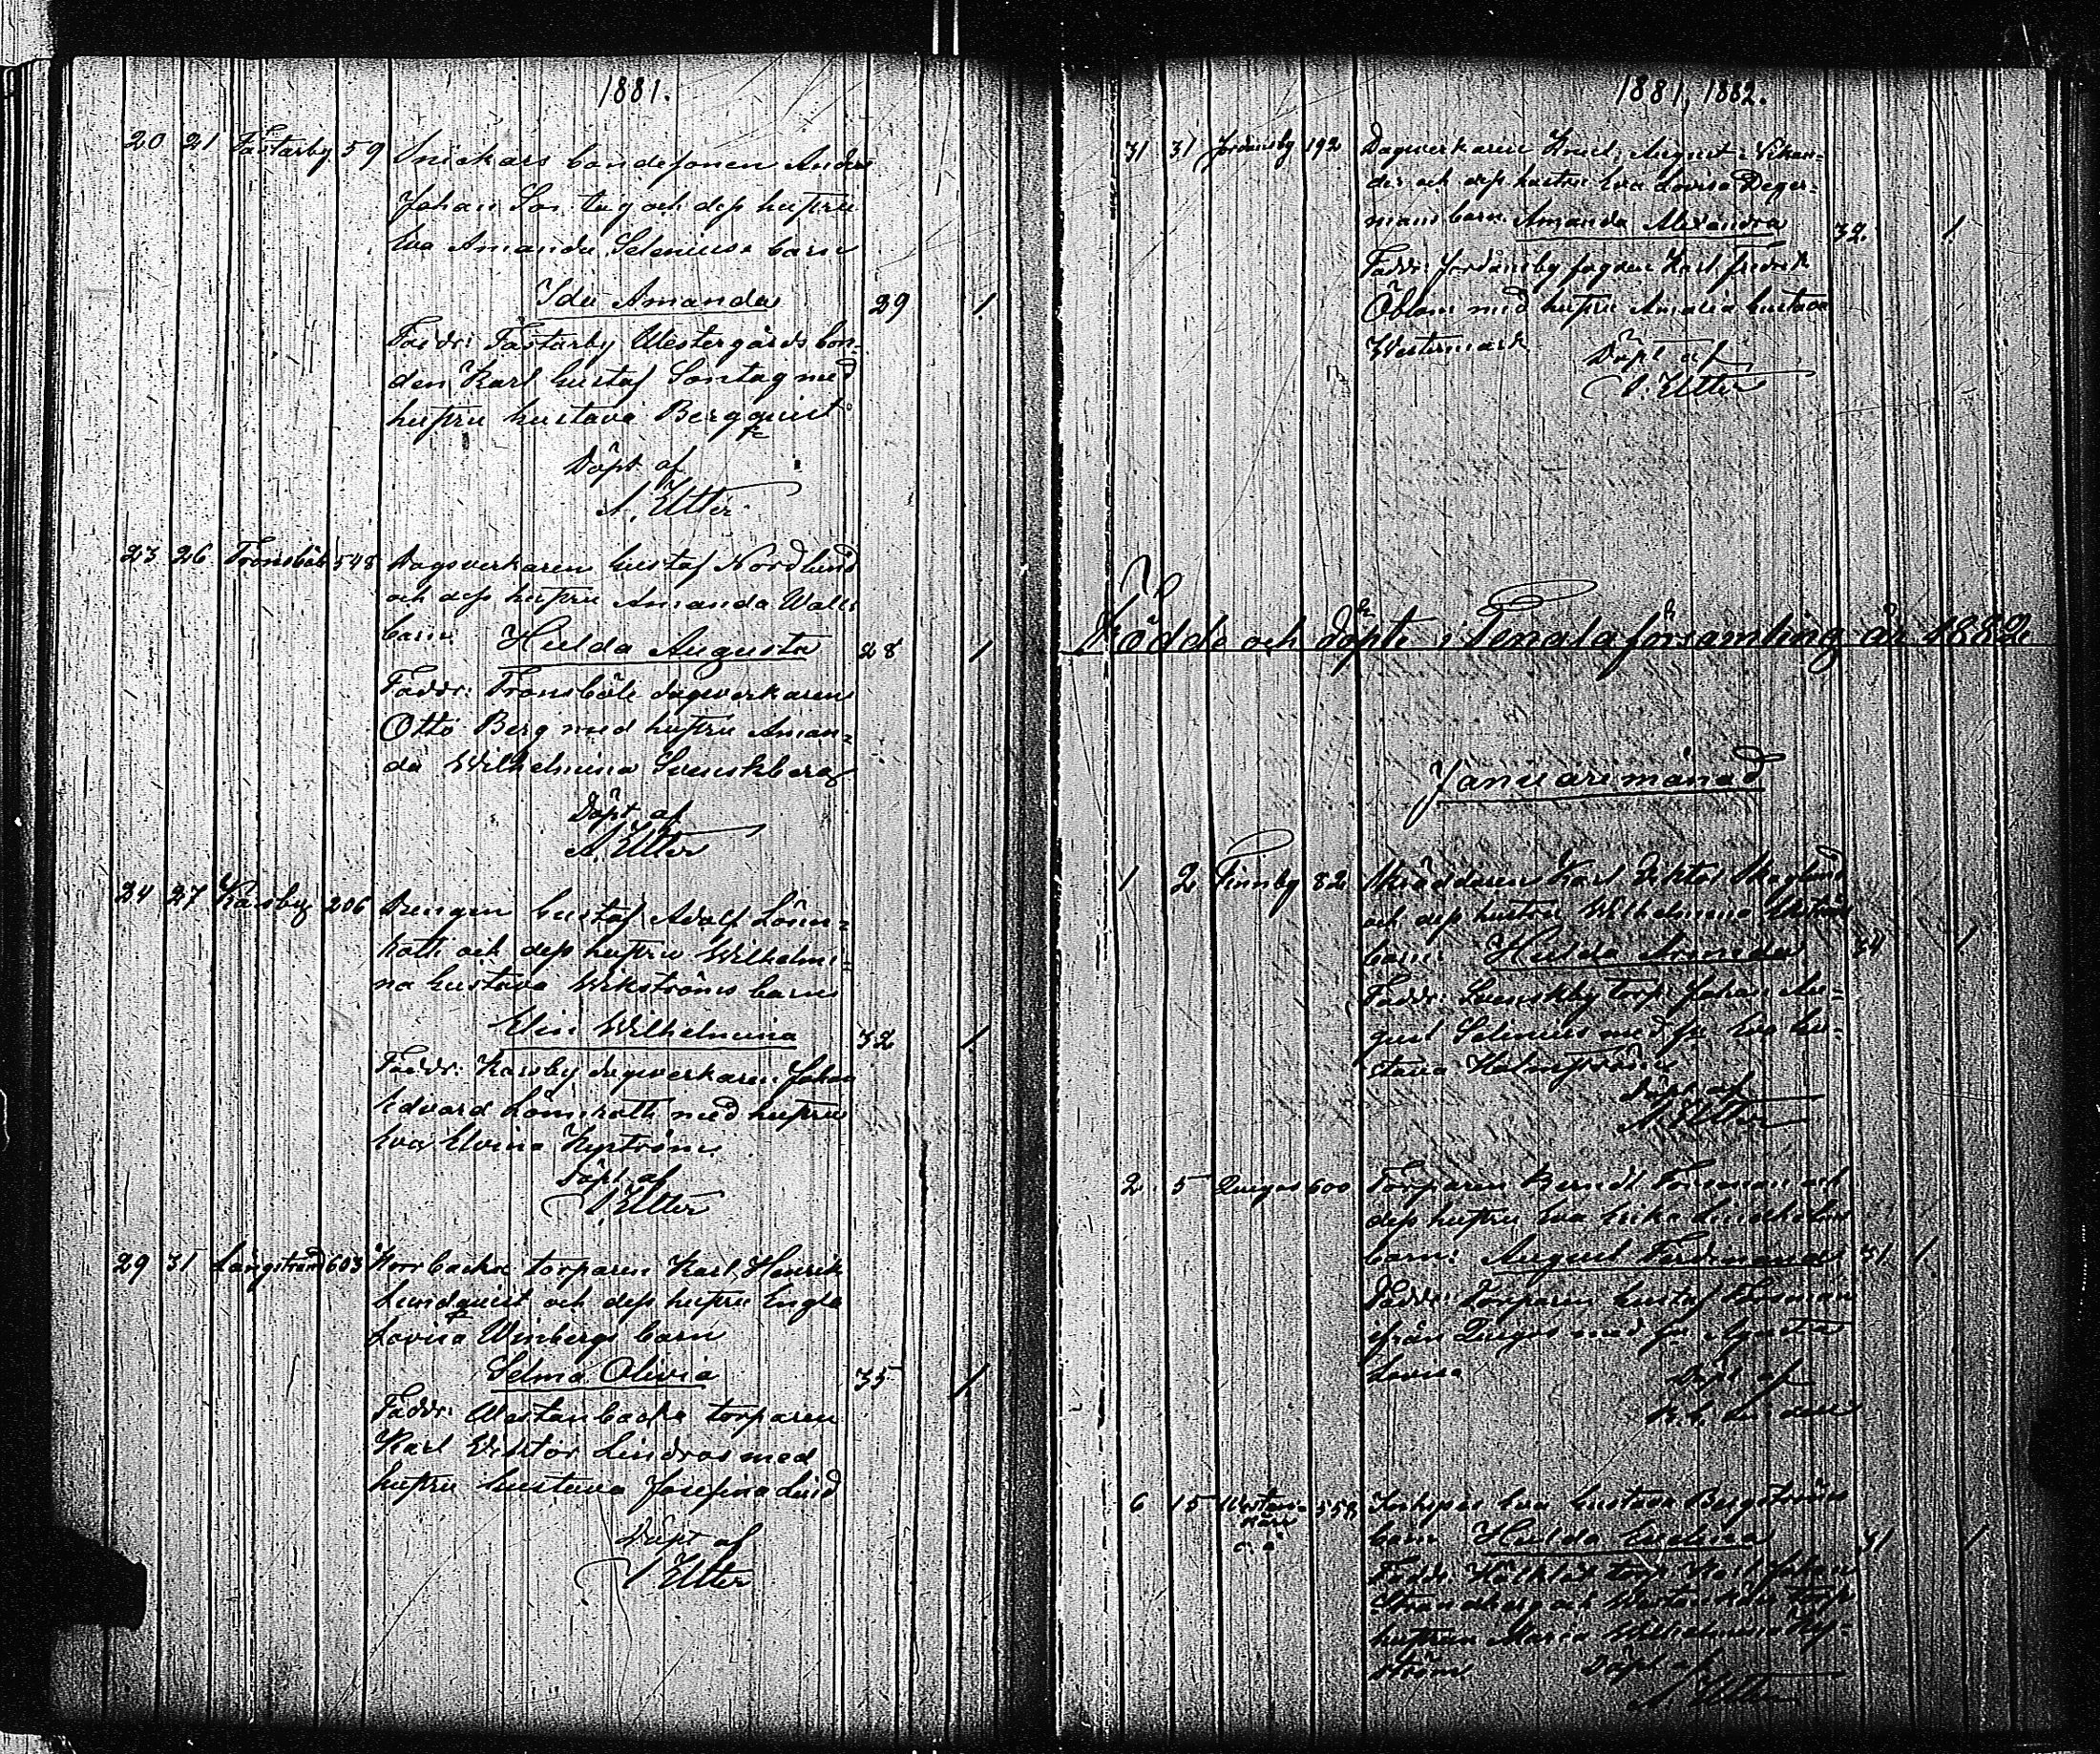 1881.
20 21 Fästarby 59 Snickars bondesonen Anders
Johan Sontag och dess hustru
Eva Amanda Selenius's barn
Ida Amanda 29 1
Faddr: Fästarby Westergårds bon-
den Karl Gustaf Sontag med
hustru Gustava Bergquist
Döpt af
A. Etter
23 26 Trönsböle 548 Dagsverkaren Gustaf Nordlund
och dess hustru Amanda Walls
barn Hulda Augusta 28 1
Faddr: Trönsböle dagsverkaren
Otto Berg med hustru Aman-
da Wilhelmina Svenskberg
Döpt af
A. Etter
24 27 Karsby 206 Drengen Gustaf Adolf Lönn-
och dess hustru Wilhelmi-
na Gustava Wikströms barn
Elin Wilhelmina 32 1
Faddr: Karsby dagsverkaren Johan
Edvard med hustru
Eva Elvina Nyström
Döpt af
A. Etter
29 31 Långstrand 603 Norrbacka torparen Karl Henrik
Lundquist och dess hustru Engla
Lovisa Winbergs barn
Selma Olivia 35 1
Faddr: Westanbacka torparen
Karl Wiktor Lindroos med
hustru Gustava Josefina Lind
Döpt af
A Etter
1881, 1882.
31 31 Jordansby 192 Dagsverkaren Knut August Vikan-
der och dess hustru Eva Lovisa Deger-
mans barn Amanda Alexandra 32 1
Faddr: Jordansby Karl Fredrik
Öblom med hustru Amalia Gustava
Westermark Döpt af
A. Etter
Födde och döpte i Tenala församling år 1882
Januarimånad
1 2 Finnby 82 Skräddaren Karl Viktor Skoglund
och dess hustru Wilhelmina
barn Hulda 1
Faddr: Svenskby torp. Johan Au-
gust Selenius med hu Eva Gu-
stava Holmström
Döpt af
A. Etter
2 5 600 Torparen Berndt Forsman och
dess hustru Eva Erika
barn: August Ferdinand 31 1
Faddr: Torparen Gustaf Forsman
ifrån med hu
Lovisa Döpt af
6 15 Westan- 558 Eva Gustava Bergströms
barn Hulda 31 1
Faddr. torp Karl Johan
Strandberg och torp
hustrun Maria Wilhelmina Ny-
ström Döpt af
A. Etter